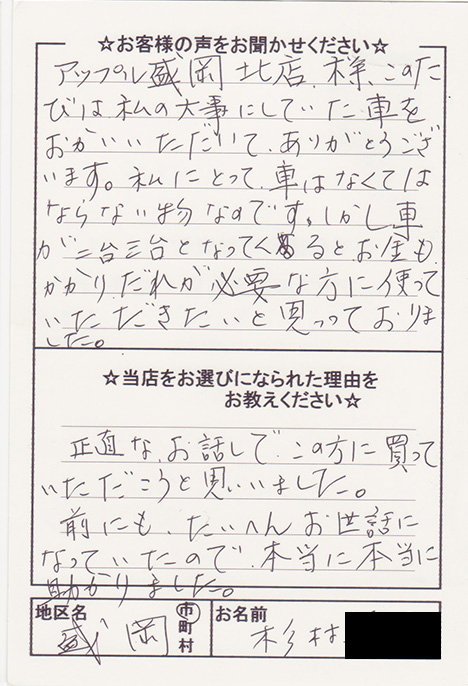 ☆お客様の声をお聞かせください☆
アップル盛岡北店、様、このた
びは、私の大事にしていた車を
おかいいただいて、ありがとうござ
います。私にとって、車はなくては
ならない物なのです。しかし車
が二台三台となってくるとお金も
かかり、だれが必要な方に使って
いただきたいと思っっておりま
した。
☆当店をお選びになられた理由を
お教えください☆
正直な、お話しで、この方に買って
いただこうと思いいました。
前にも、たいへんお世話に
なっていたので、本当に本当に
助かりました。
地区名 盛岡 市町村 お名前 杉村